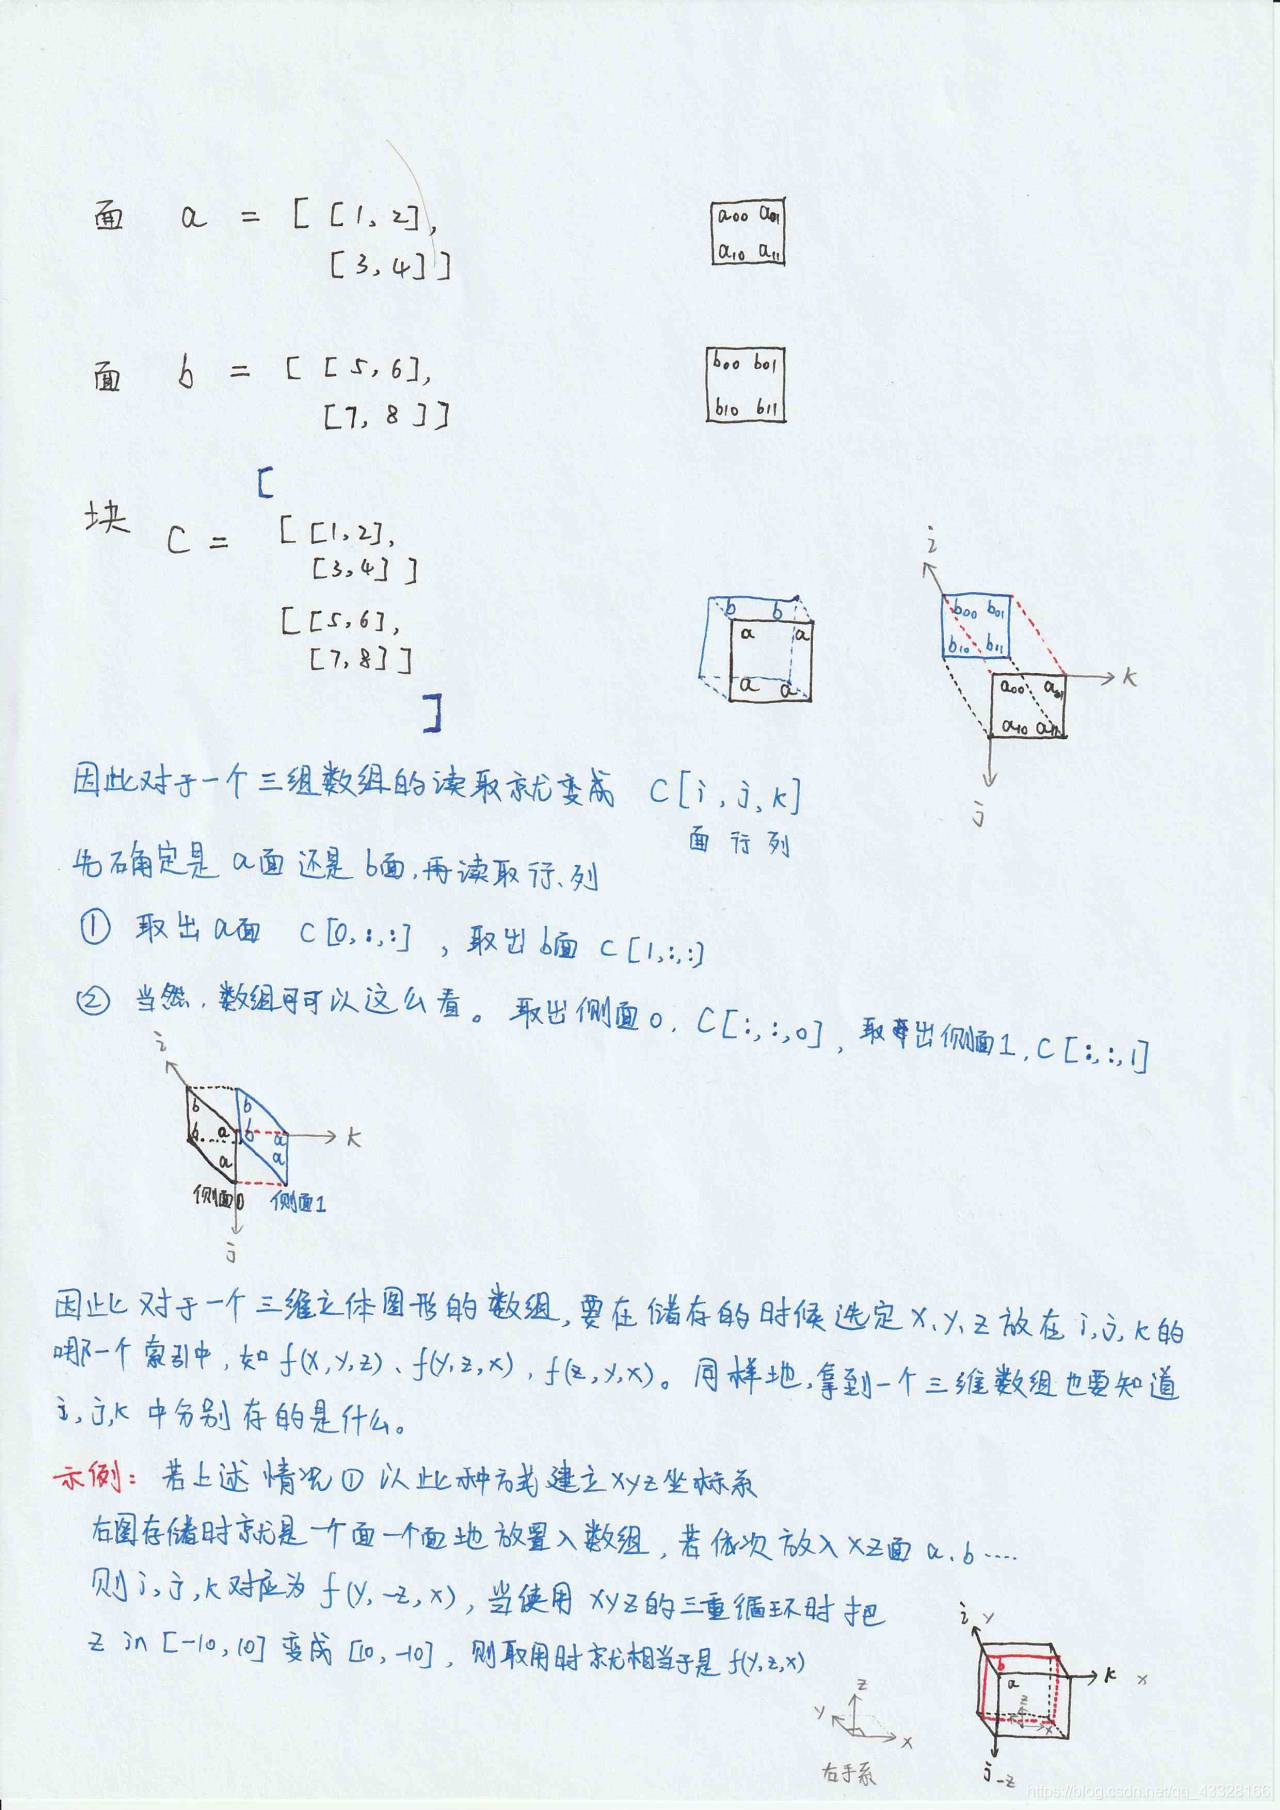 面 a = [ [1, 2],
[3, 4] ]
a00 a01
a10 a11
面 b = [ [5, 6],
[7, 8 ] ]
b00 b01
b10 b11
[
块 C =
[ [1, 2],
[3, 4] ]
[ [5, 6],
[7, 8] ]
]
b b
a a
a a
i
b00 b01
b10 b11
k
a00 a01
a10 a11
j
因此对于一个三组数组的读取就变成 C[i, j, k]
面 行 列
先确定是 a面 还是 b面,再读取行、列
① 取出a面 C[0,:,:] , 取出b面 C[1,:,:]
② 当然,数组可可以这么看。取出侧面0, C[:,:,0], 取出侧面1, C[:,:,1]
i
b b
b a b a k
a a
侧面0 侧面1
j
因此对于一个三维立体图形的数组,要在储存的时候选定 x、y、z 放在 i,j,k的
哪一个索引中,如 f(x,y,z)、f(y,z,x),f(z,y,x)。同样地,拿到一个三维数组也要知道
i,j,k 中分别存的是什么。
示例: 若上述情况① 以此种方式建立xyz坐标系
右图存储时就是一个面一个面地放置入数组,若依次放入xz面 a、b ....
则i,j,k对应为 f(y,-z,x), 当使用 xyz的三重循环时把
z in [-10, 10] 变成 [10, -10], 则取用时就相当于是 f(y,z,x)
i y
b
a
k x
z
x
j -z
z
y
x
右手系
https://blog.csdn.net/qq_43328166